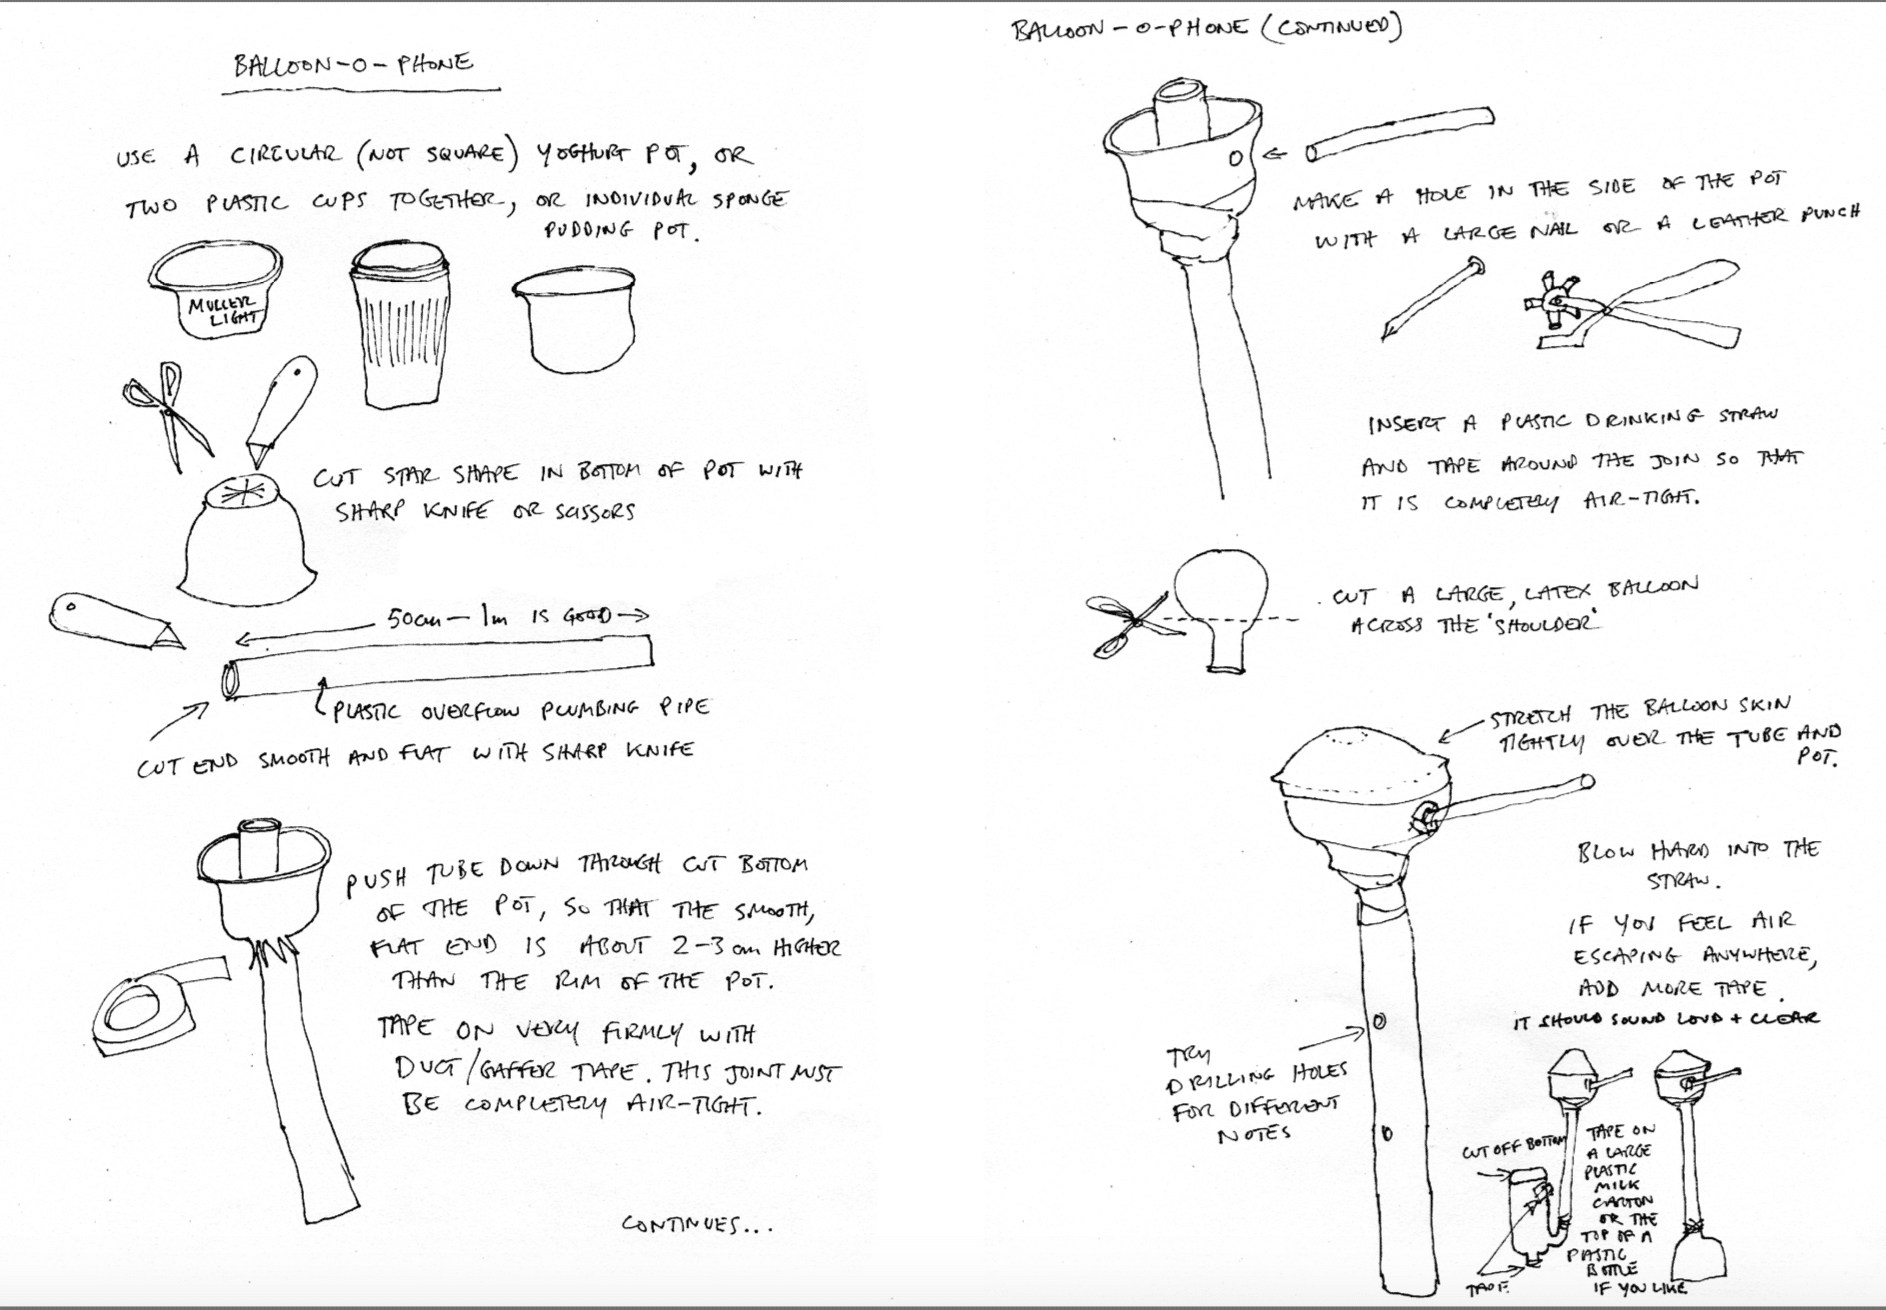 BALLOON-O-PHONE
USE A CIRCULAR (NOT SQUARE) YOGHURT POT, OR
TWO PLASTIC CUPS TOGETHER, OR INDIVIDUAL SPONGE
PUDDING POT.
MULLER
LIGHT
CUT STAR SHAPE IN BOTTOM OF POT WITH
SHARP KNIFE OR SCISSORS
50cm - 1m IS GOOD
PLASTIC OVERFLOW PLUMBING PIPE
CUT END SMOOTH AND FLAT WITH SHARP KNIFE
PUSH TUBE DOWN THROUGH CUT BOTTOM
OF THE POT, SO THAT THE SMOOTH,
FLAT END IS ABOUT 2-3 cm HIGHER
THAN THE RIM OF THE POT.
TAPE ON VERY FIRMLY WITH
DUCT/GAFFER TAPE. THIS JOINT MUST
BE COMPLETELY AIR-TIGHT.
CONTINUES...
BALLOON-O-PHONE (CONTINUED)
MAKE A HOLE IN THE SIDE OF THE POT
WITH A LARGE NAIL OR A LEATHER PUNCH
INSERT A PLASTIC DRINKING STRAW
AND TAPE AROUND THE JOIN SO THAT
IT IS COMPLETELY AIR-TIGHT.
CUT A LARGE, LATEX BALLOON
ACROSS THE 'SHOULDER'
STRETCH THE BALLOON SKIN
TIGHTLY OVER THE TUBE AND
POT.
BLOW HARD INTO THE
STRAW.
IF YOU FEEL AIR
ESCAPING ANYWHERE,
ADD MORE TAPE.
IT SHOULD SOUND LOUD + CLEAR
TRY
DRILLING HOLES
FOR DIFFERENT
NOTES
CUT OFF BOTTOM
TAPE
TAPE ON
A LARGE
PLASTIC
MILK
CARTON
OR THE
TOP OF A
PLASTIC
BOTTLE
IF YOU LIKE